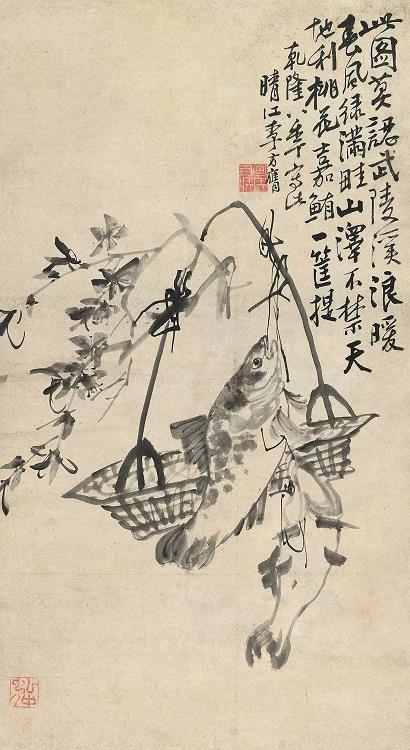 此圖莫認武陵溪浪暖
春風綠滿畦山澤不禁天
地利桃花嘉鮪一筐提
乾隆八年寫此
晴江李方膺